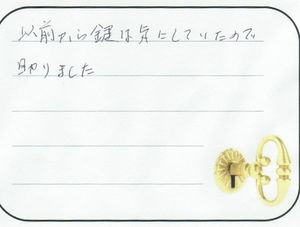 以前から鍵は気にしていたので
助りました